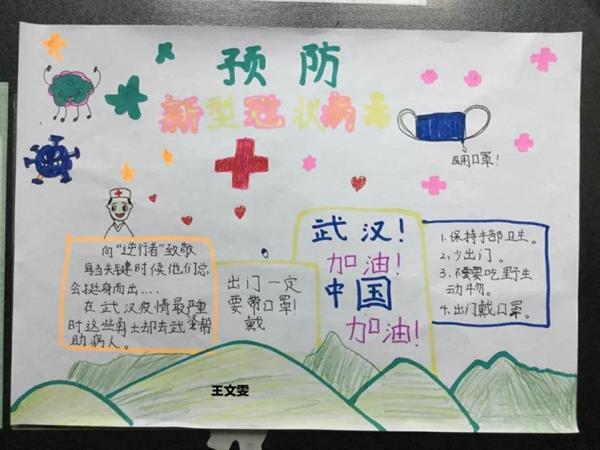 预防
新型冠状病毒
医用口罩!
向“逆行者”致敬
每当关键时候他们总
会挺身而出....
在武汉疫情最重
时这些勇士却去武汉帮
助病人。
出门一定
要带口罩!
戴
武汉!
加油!
中国
加油!
1.保持手部卫生。
2.少出门。
3.不要吃野生
动物。
4.出门戴口罩。
王文雯